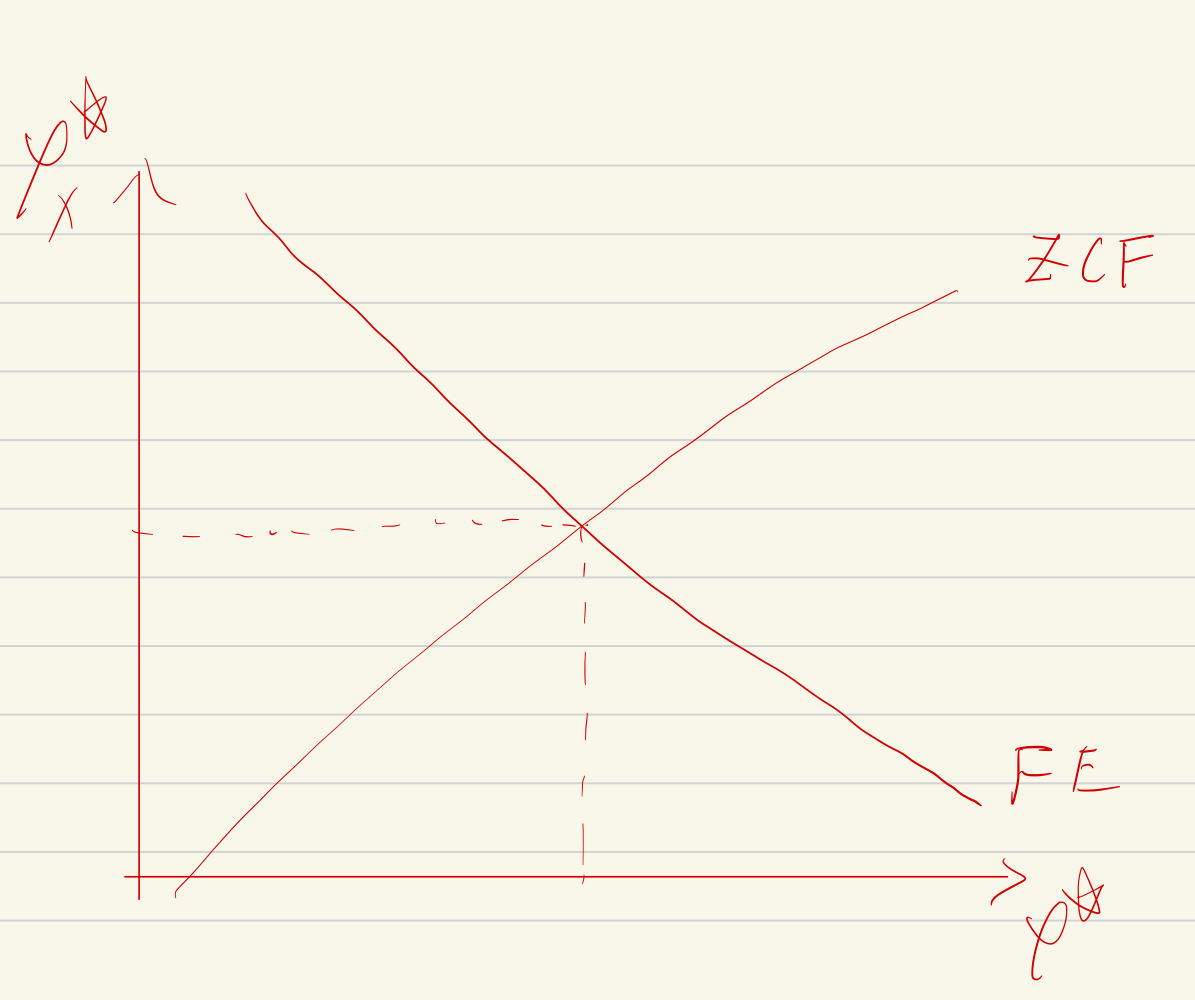 φ*
x
ZCF
FE
φ*